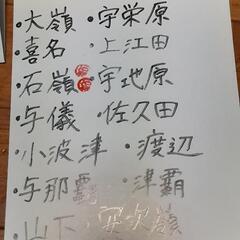 ・大嶺 ・宇栄原
・喜名 ・上江田
・石嶺 ・宇地原
・与儀 ・佐久田
・小波津 ・渡辺
・与那覇 ・津覇
・山下 ・安次嶺